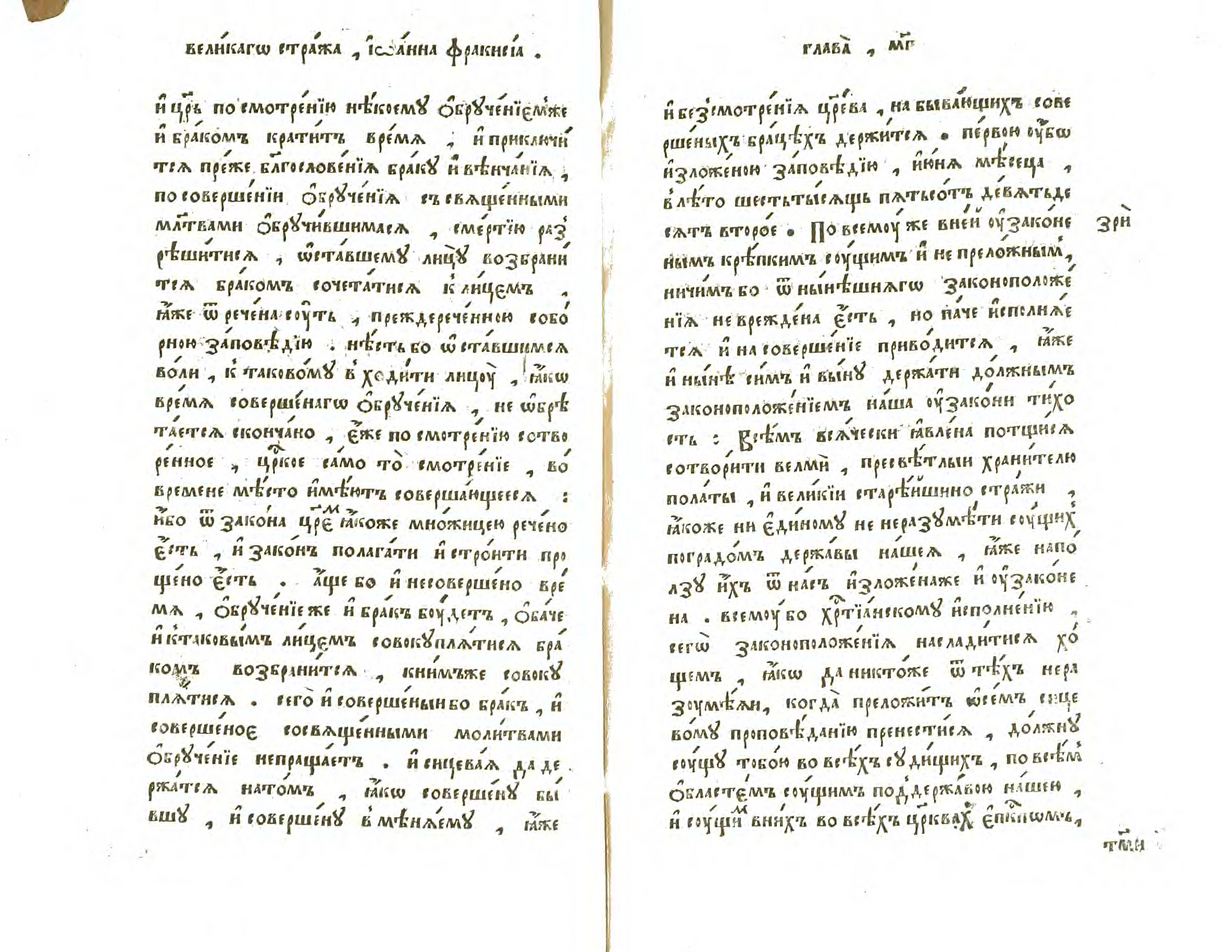 вели́кагѡ стра́жа , і҆ѡа́нна фракисі́а .
и҆ цр҃ь по смотре́нїю нѣ́коему ѻ҆брꙋче́нїемже
и҆ бра́комъ крати́тъ вре́мя , и҆ приключи́
тся пре́же бл҃гослове́нїя бра́кꙋ и҆ вѣнча́нїя ,
по соверше́нїи ѻ҆брꙋче́нїя съ свяще́нными
мл҃твами ѻ҆брꙋчи́вшимася , сме́ртїю раз̾
рѣши́тися , ѡ҆ста́вшемꙋ лицꙋ̀ возбрани́
тся бра́комъ сочета́тися к лице́мъ ,
ꙗ҆́же ѿ рече́на сꙋ́ть , преждерече́нною собо́
рною за́повѣдїю . нѣ́сть бо ѡ҆ста́вшимся
во́ли , к таково́мꙋ в ходи́ти лицꙋ̀ , ꙗ҆́кѡ
вре́мя соверше́нагѡ ѻ҆брꙋче́нїя , не ѡ҆брѣ
та́ется сконча́но , є҆́же по смотре́нїю сотво
ре́нное , цр҃кое са́мо то̀ смотре́нїе , во́
времене мѣ́сто и҆мѣ́ютъ соверша́ющееся :
и҆́бо ѿ зако́на цр҃емъ ꙗ҆́коже мно́жицею рече́но
є҆́сть , и҆ зако́нъ полага́ти и҆ стро́ити про
ще́но є҆́сть . а҆́ще бо и҆ несоверше́но вре́
мя , ѻ҆брꙋче́нїе же и҆ бра́къ бꙋ́детъ , ѻ҆ба́че
и҆ ктаковы́мъ лице́мъ совокꙋпля́тися бра́
комъ возбрани́тся , кни́мъже совокꙋ
пля́тися . сего̀ и҆ соверше́ныи бо бра́къ , и҆
соверше́ное сосвяще́нными моли́твами
ѻ҆брꙋче́нїе непраща́етъ . и҆ сицева́я да де
ржа́тся нато́мъ , ꙗ҆́кѡ соверше́нꙋ бы́
вшꙋ , и҆ соверше́нꙋ вмѣня́емꙋ , ꙗ҆́же
глава̀ , мг҃
и҆ без̾смотре́нїя цр҃ева , на быва́ющихъ сове
рше́ныхъ бра́цѣхъ держи́тся . пе́рвою ᲂу҆́бѡ
и҆зложе́ною за́повѣдїю , и҆ю́ня мѣ́сеца ,
в лѣ́то шестьты́сящь пятьсо́тъ де́вятьде
ся́тъ второ́е . По всемꙋ́ же вне́й ᲂу҆зако́не
нымъ крѣ́пкимъ сꙋ́щимъ и҆ не прело́жнымъ,
ничи́мъ бо ѿ ны́нѣшнягѡ законоположе́
нїя не врежде́на є҆́сть , но па́че и҆сполня́е
тся и҆ на соверше́нїе приво́дится , ꙗ҆́же
и҆ ны́нѣ си́мъ и҆ вы́нꙋ держа́ти до́лжнымъ
законоположе́нїемъ на́ша ᲂу҆зако́ни ти́хо
сть : Всѣ́мъ вся́чески ꙗ҆вле́на потщи́ся
сотвори́ти велмѝ , пресвѣ́тлыи храни́телю
пола́ты , и҆ вели́кїи старѣ́йшино стра́жи ,
ꙗ҆́коже ни є҆ди́номꙋ не неразꙋмѣ́ти сꙋ́щихъ
погра́домъ держа́вы на́шея , ꙗ҆́же напо́
лзꙋ и҆́хъ ѿ на́съ и҆зложе́на же и҆ ᲂу҆зако́не
на . всемꙋ́ бо хрⷭ҇тїа́нскомꙋ и҆сполне́нїю ,
сегѡ̀ законоположе́нїя наслади́тися хо́
щемъ , ꙗ҆́кѡ да никто́же ѿ тѣ́хъ нера
зꙋмѣ́яи, когда̀ преложи́тъ ѡ҆ се́мъ сице
во́мꙋ проповѣ́данїю пренести́ся , до́лжнꙋ
сꙋ́щꙋ тобо́ю во всѣ́хъ сꙋди́щихъ , по всѣ́мъ
ѻ҆бласте́мъ сꙋ́щимъ под̾ держа́вою на́шею ,
и҆ сꙋ́щимъ вни́хъ во всѣ́хъ цр҃квахъ є҆пⷭ҇кпѡмъ,
зрѝ